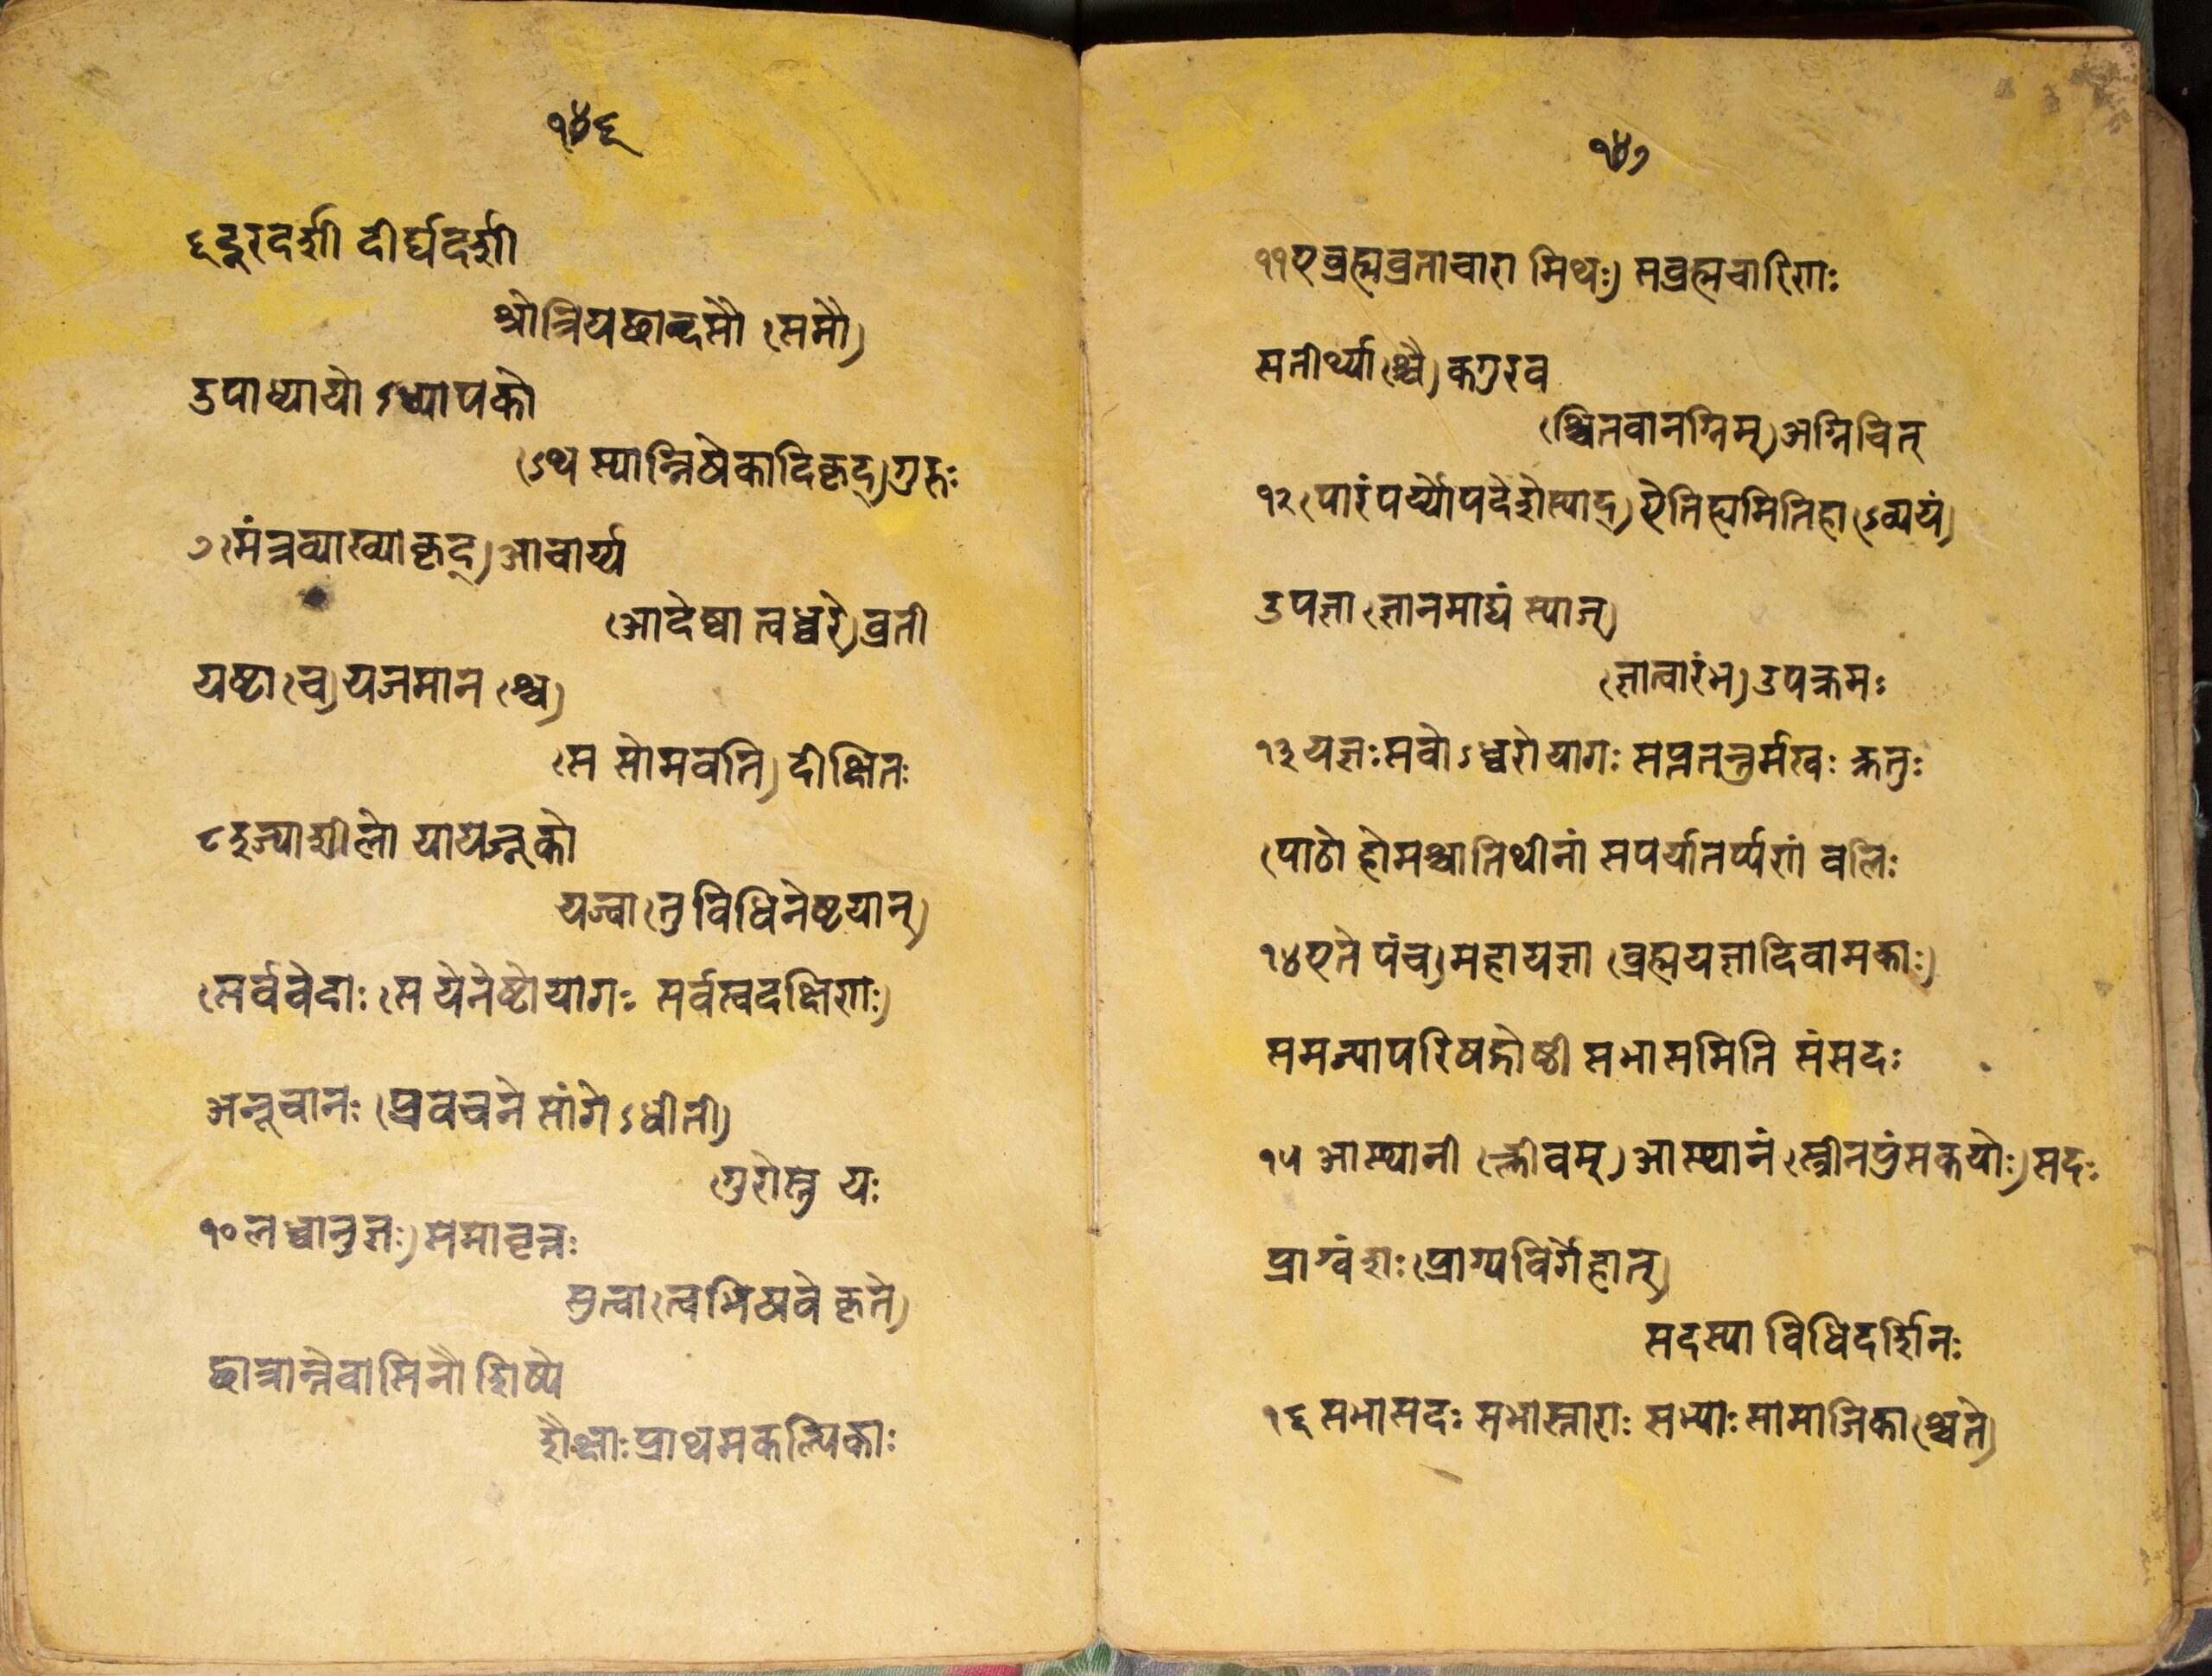 १४६
६ दूरदर्शी दीर्घदर्शी
श्रोत्रियछान्दसौ (समौ)
उपाध्यायोऽध्यापको
(ऽथ स्यान्निषेकादिकृद्) गुरुः
७ (मंत्रव्याख्याकृद्) आचार्य्य
(आदेष्टा त्वध्वरे) व्रती
यष्टा (च) यजमान (श्च)
(स सोमवति) दीक्षितः
८ इज्याशीलो यायजूको
यज्वा (तु विधिनेष्टवान्)
(सर्ववेदाः (स येनेष्टो यागः सर्वस्वदक्षिणः)
अनूचानः (प्रवचने सांगेऽधीती)
(गुरोस्तु यः
१० लब्धानुज्ञः) समावृत्तः
सुत्वा (त्वभिषवे कृते)
छात्रान्तेवासिनौ शिष्ये
शैक्षाः प्राथमकल्पिकाः
१४७
११ एकब्रह्मव्रताचारा मिथः) सब्रह्मचारिणः
सतीर्थ्या (श्चै) कगुरव
(श्चितवानग्निम्) अग्निचित्
१२ (पारंपर्य्योपदेशे स्याद्) ऐतिह्यमितिहा (ऽव्ययं)
उपज्ञा (ज्ञानमाद्यं स्याज्)
(ज्ञात्वारंभ) उपक्रमः
१३ यज्ञः सवोऽध्वरो यागः सप्ततन्तुर्मखः क्रतुः
(पाठो होमश्चातिथीनां सपर्यातर्प्पणं बलिः
१४ एते पंच) महायज्ञा (ब्रह्मयज्ञादिनामकाः)
समज्यापरिषद्गोष्ठी सभासमिति संसदः
१५ आस्थानी (क्लीवम्) आस्थानं (स्त्रीनपुंसकयोः) सदः
प्राग्वंशः (प्राग्घविर्गेहात्)
सदस्या विधिदर्शिनः
१६ सभासदः सभास्ताराः सभ्याः सामाजिका (श्चते)